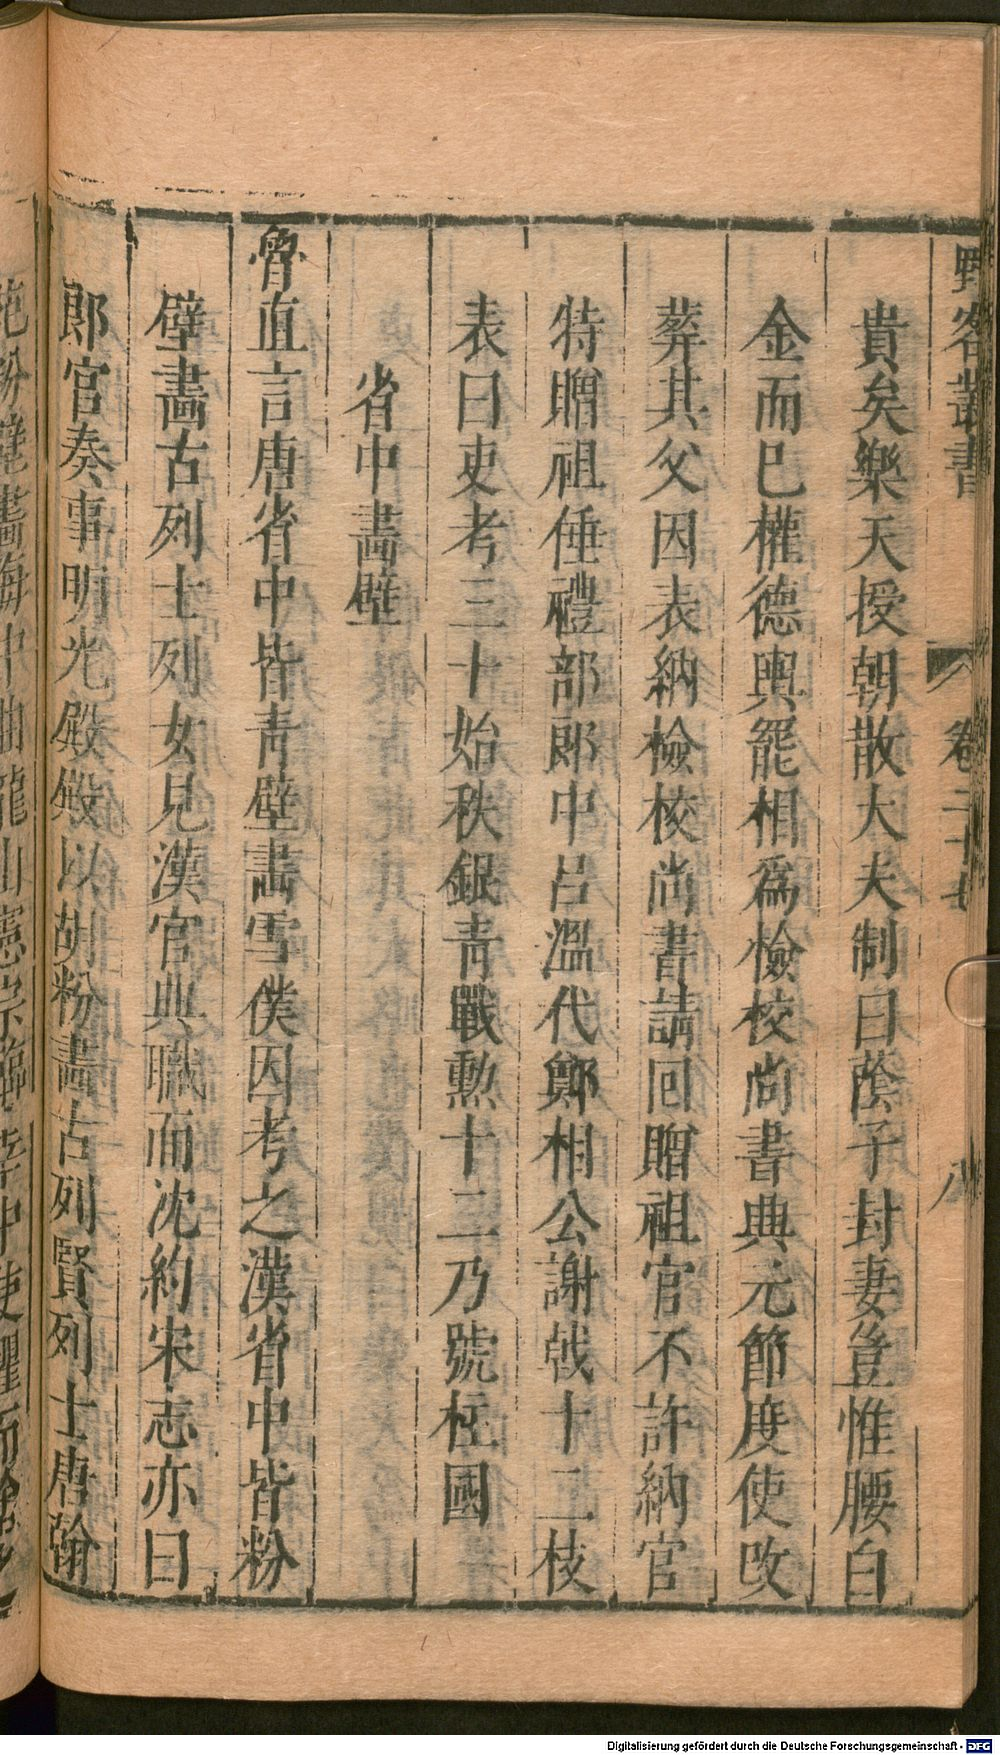 野客叢書 卷二十七 八
貴矣樂天授朝散大夫制曰蔭子封妻豈惟腰白
金而已權德輿罷相爲檢校尚書典元節度使改
葬其父因表納檢校尚書請回贈祖官不許納官
特贈祖倕禮部郎中呂溫代鄭相公謝戟十二枝
表曰吏考三十始秩銀青戰勲十二乃號柱國
省中畵壁
魯直言唐省中皆青壁畵雪僕因考之漢省中皆粉
壁畵古列士列女見漢官典職而沈約宋志亦曰
郎官奏事明光殿殿以胡粉畵古列賢列士唐翰
苑粉壁畵海中曲龍山憲宗臨幸中使懼而
Digitalisierung gefördert durch die Deutsche Forschungsgemeinschaft - DFG